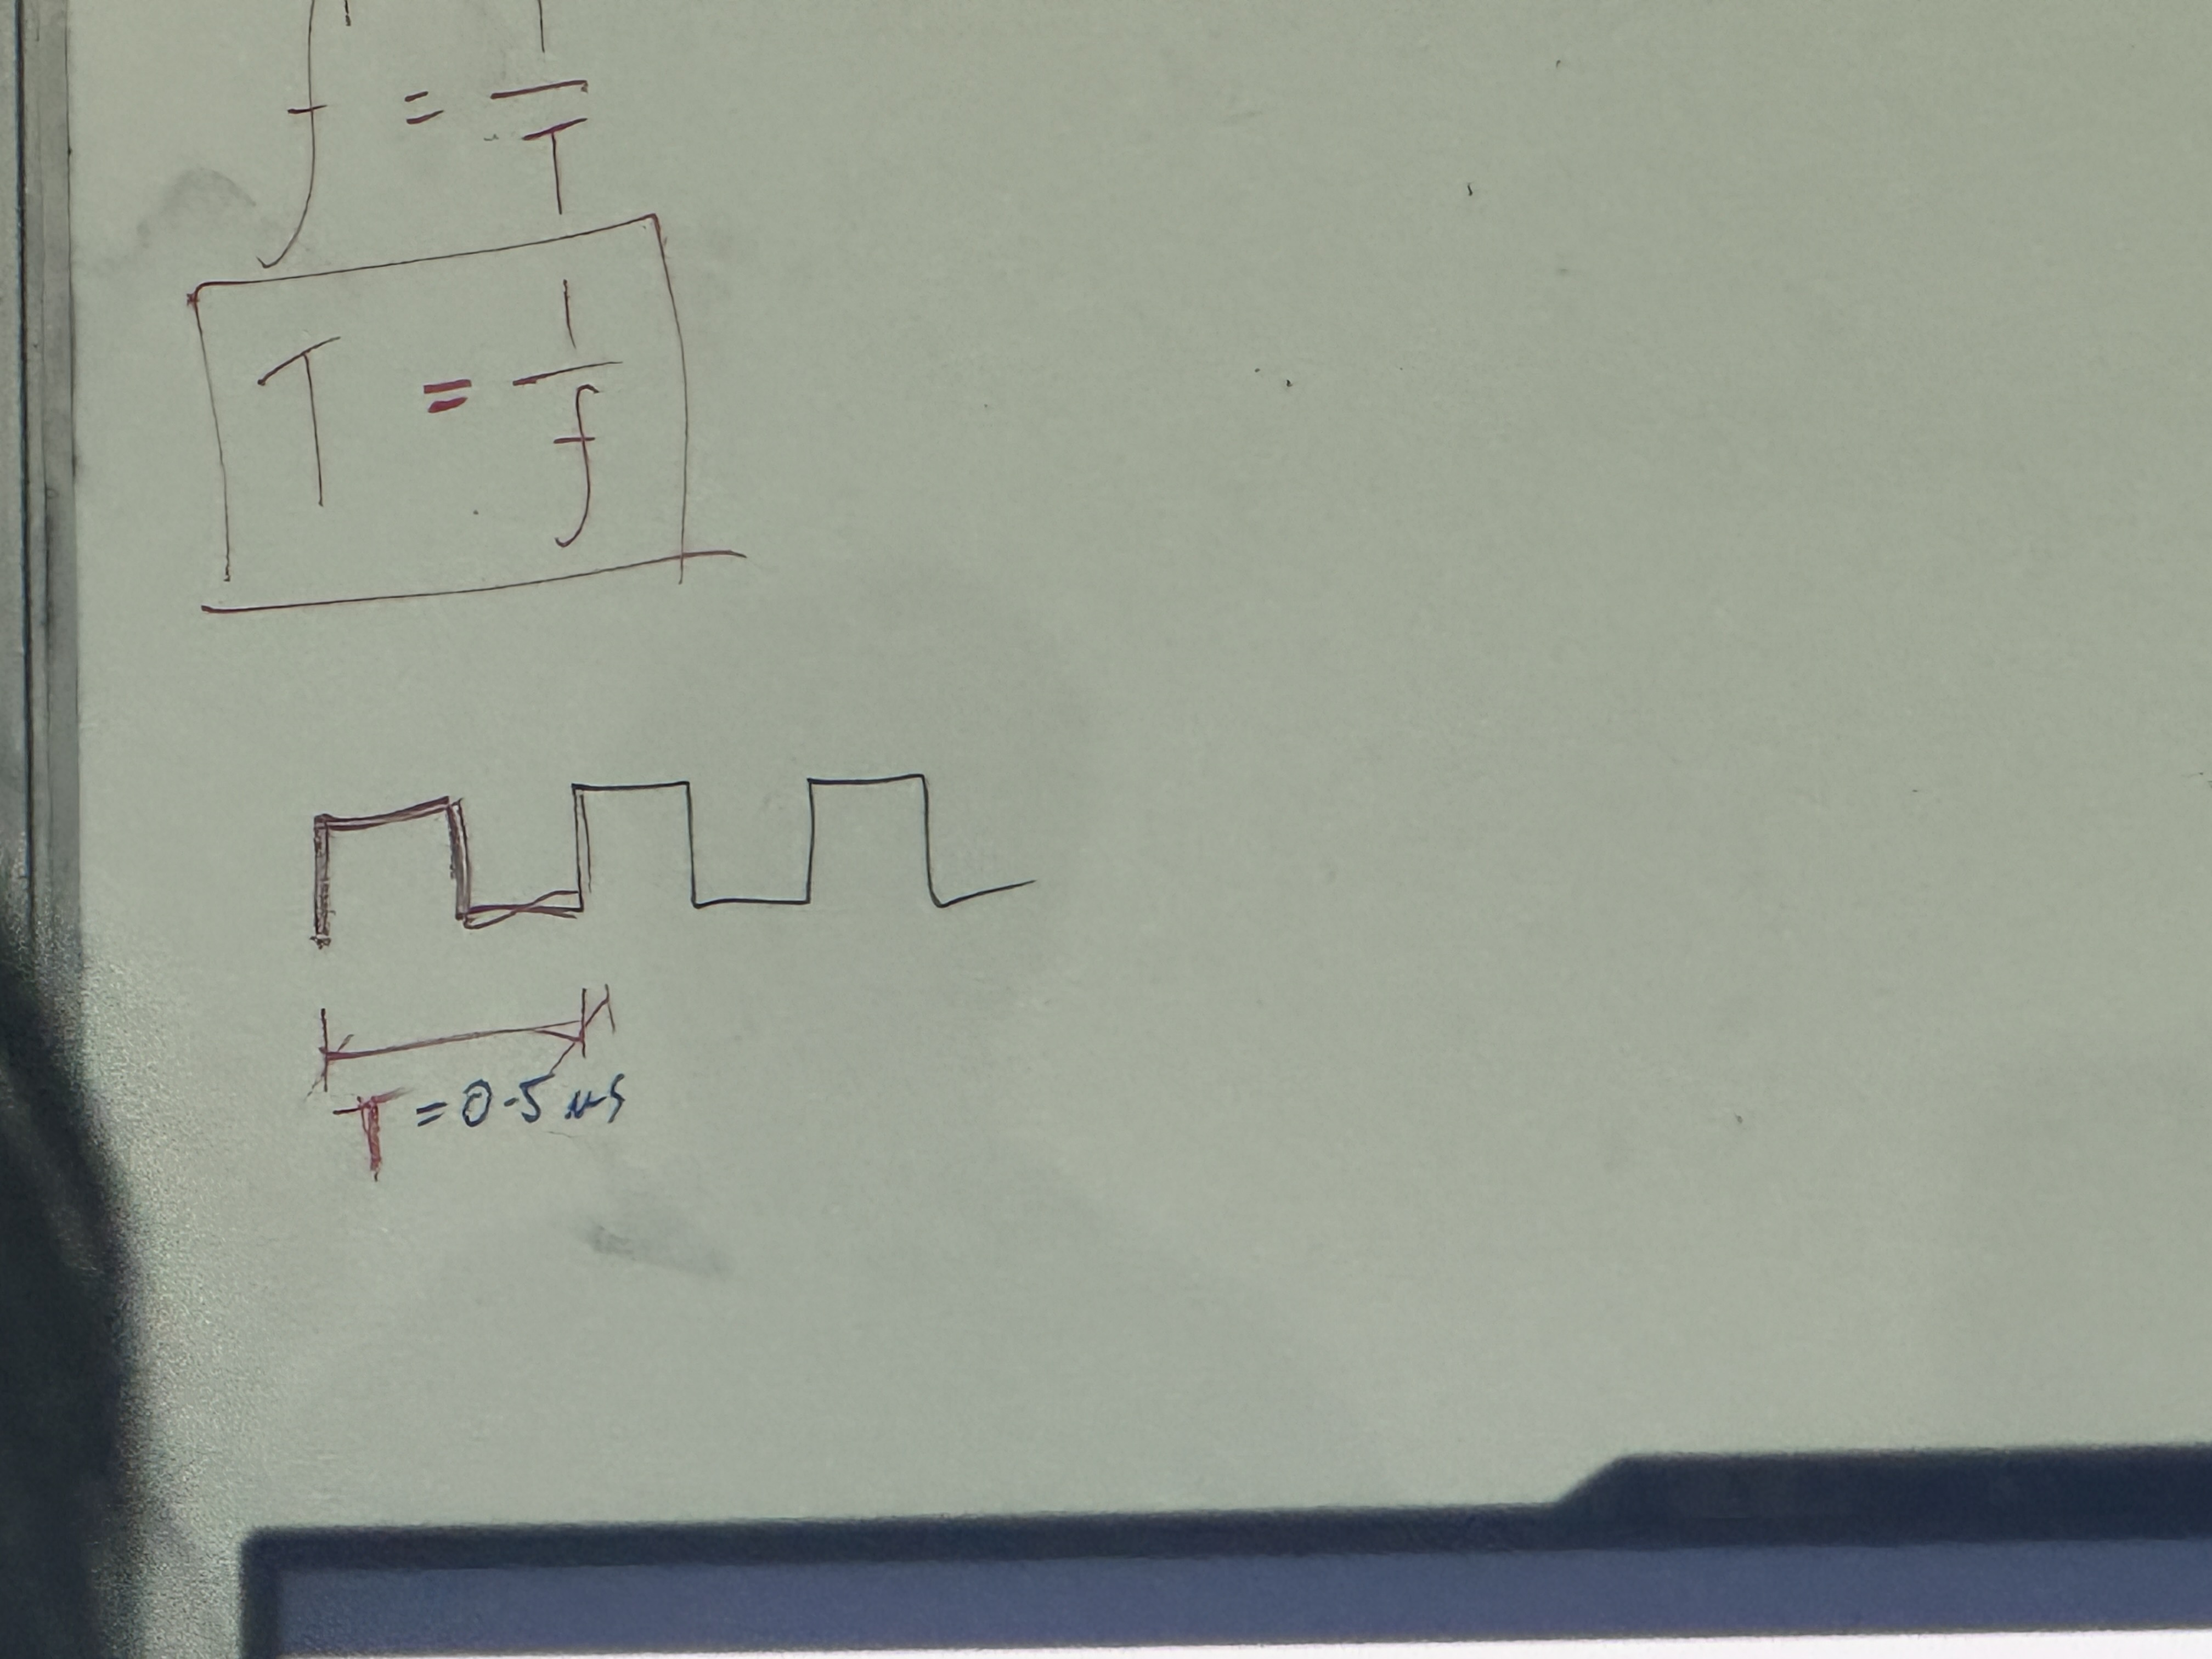 f = 1/T
T = 1/f
T = 0.5 us